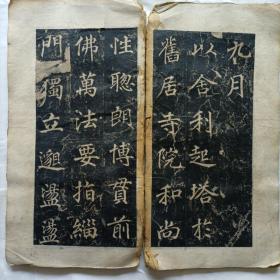 九月
以舍利起塔於
舊居寺院和尚
性聰朗博貫前
佛萬法要指緇
門獨立邈盪盪